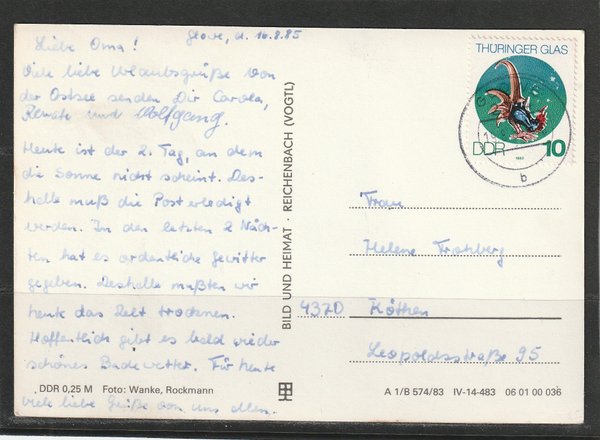 Glowe, d. 16.8.85
Liebe Oma!
Viele liebe Urlaubsgrüße von
der Ostsee senden Dir Carola,
Renate und Wolfgang.
Heute ist der 2. Tag, an dem
die Sonne nicht scheint. Des-
halb muß die Post erledigt
werden. In den letzten 2 Näch-
ten hat es ordentliche Gewitter
gegeben. Deshalb mußten wir
heute das Zelt trocknen.
Hoffentlich gibt es bald wieder
schönes Badewetter. Für heute
viele liebe Grüße von uns allen.
DDR 0,25 M Foto: Wanke, Rockmann
BILD UND HEIMAT · REICHENBACH (VOGTL)
THÜRINGER GLAS
DDR 10
1983
b
Frau
Helene Frohberg
4370 Köthen
Leopoldstraße 95
A 1/B 574/83 IV-14-483 06 01 00 036